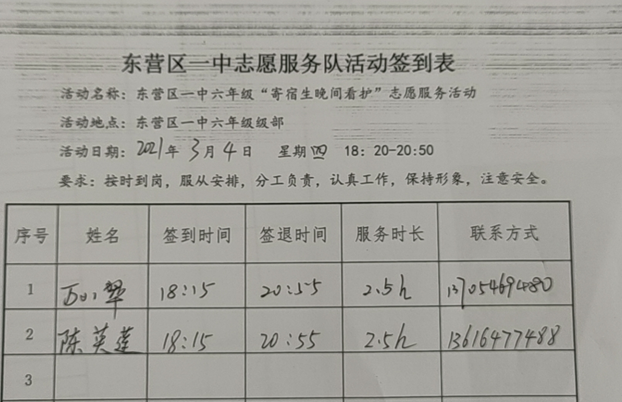 东营区一中志愿服务队活动签到表
活动名称：东营区一中六年级“寄宿生晚间看护”志愿服务活动
活动地点：东营区一中六年级级部
活动日期：2021年 3月4日 星期四 18：20-20:50
要求：按时到岗，服从安排，分工负责，认真工作，保持形象，注意安全。
序号 姓名 签到时间 签退时间 服务时长 联系方式
1 18:15 20:55 2.5h 13705469480
2 陈英莲 18:15 20:55 2.5h 13616477488
3